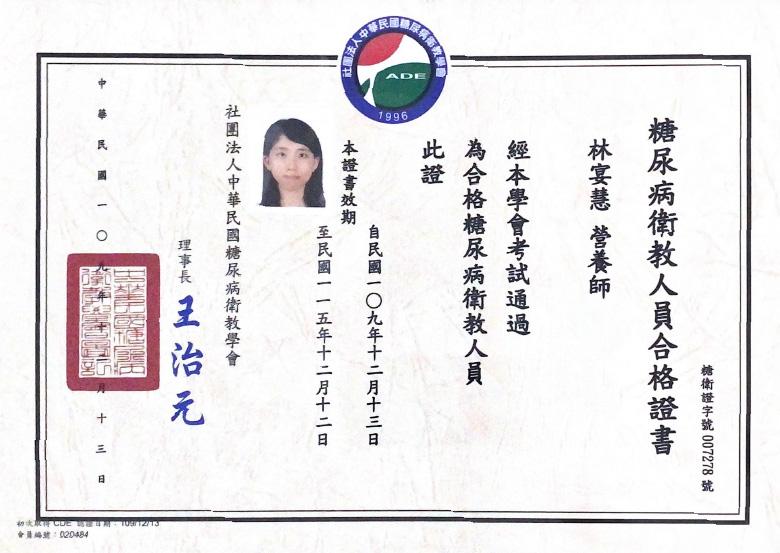 社團法人中華民國糖尿病衛教學會
ADE
1996
糖尿病衛教人員合格證書
糖衛證字號 007278 號
林宴慧 營養師
經本學會考試通過
為合格糖尿病衛教人員
此證
本證書效期
自民國一〇九年十二月十三日
至民國一一五年十二月十二日
社團法人中華民國糖尿病衛教學會
理事長 王治元
中華民國一〇九年十二月十三日
初次取得 CDE 認證日期：109/12/13
會員編號：020484